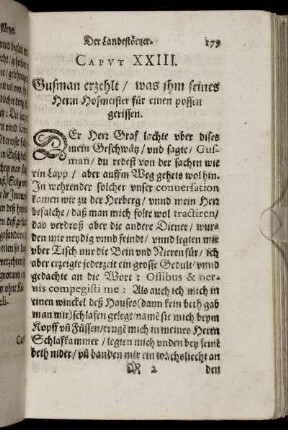 Der Landestörtzer. 179
CAPVT XXIII.
Gusman erzehlt / was jhm seines
Herrn Hofmeister für einen possen
gerissen.
DEr Herr Graf lachte vber dises
mein Geschwätz / vnd sagte / Gus-
man / du redest von der sachen wie
ein Lapp / aber aussen Weg gehets wol hin.
In wehrender solcher vnser conuersation
kamen wir zu der Herberg / vnnd mein Herr
befalche / daß man mich solte wol tractiren /
das verdroß aber die andere Diener / wur-
den mir neydig vnnd feindt / vnnd legten mir
vber Tisch nur die Bein vnd Nieren für / ich
aber erzeigte jederzeit ein grosse Gedult / vnnd
gedachte an die Wort: Ossibus & ner-
uis compegisti me: Als auch ich mich in
einen winckel deß Hauses (dann kein beth gab
man mir) schlafen gelegt / name sie mich beym
Kopff vñ Füssen / truge mich in meines Herrn
Schlafkammer / legten mich vnden bey seine
beth nider / vñ banden mir ein wachsliecht an
M 2 den